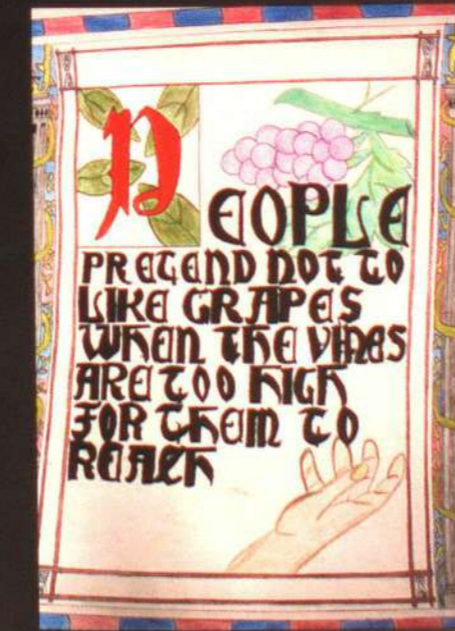 PEOPLE
PRETEND NOT TO
LIKE GRAPES
WHEN THE VINES
ARE TOO HIGH
FOR THEM TO
REACH